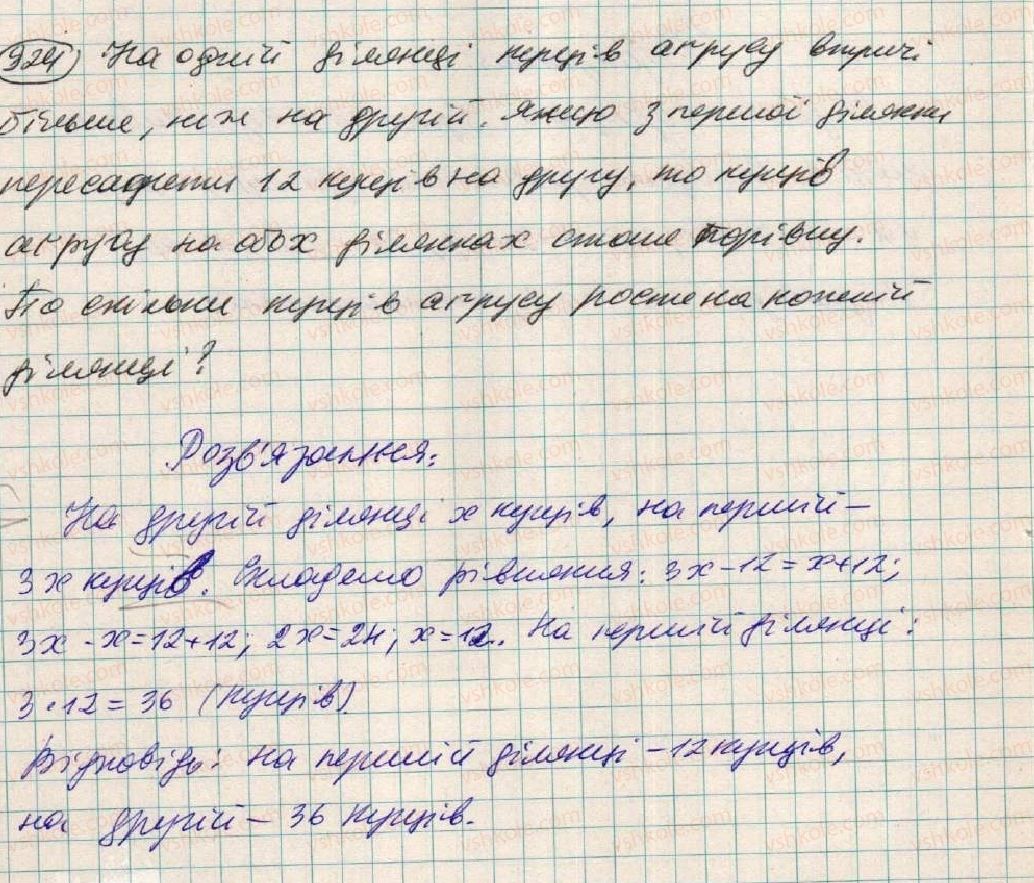 924) На одній ділянці кущів аґрусу втричі
більше, ніж на другій. Якщо з першої ділянки
пересадити 12 кущів на другу, то кущів
аґрусу на обох ділянках стане порівну.
По скільки кущів аґрусу росте на кожній
ділянці?
Розв'язання:
На другій ділянці x кущів, на першій –
3x кущів. Складемо рівняння: 3x - 12 = x + 12;
3x - x = 12 + 12; 2x = 24; x = 12. На першій ділянці:
3 · 12 = 36 (кущів)
Відповідь: на першій ділянці – 12 кущів,
на другій – 36 кущів.